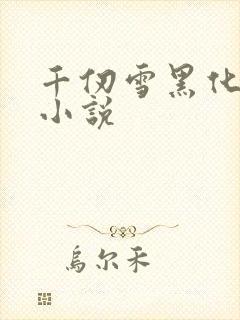 千仞雪黑化
小说
乌尔禾